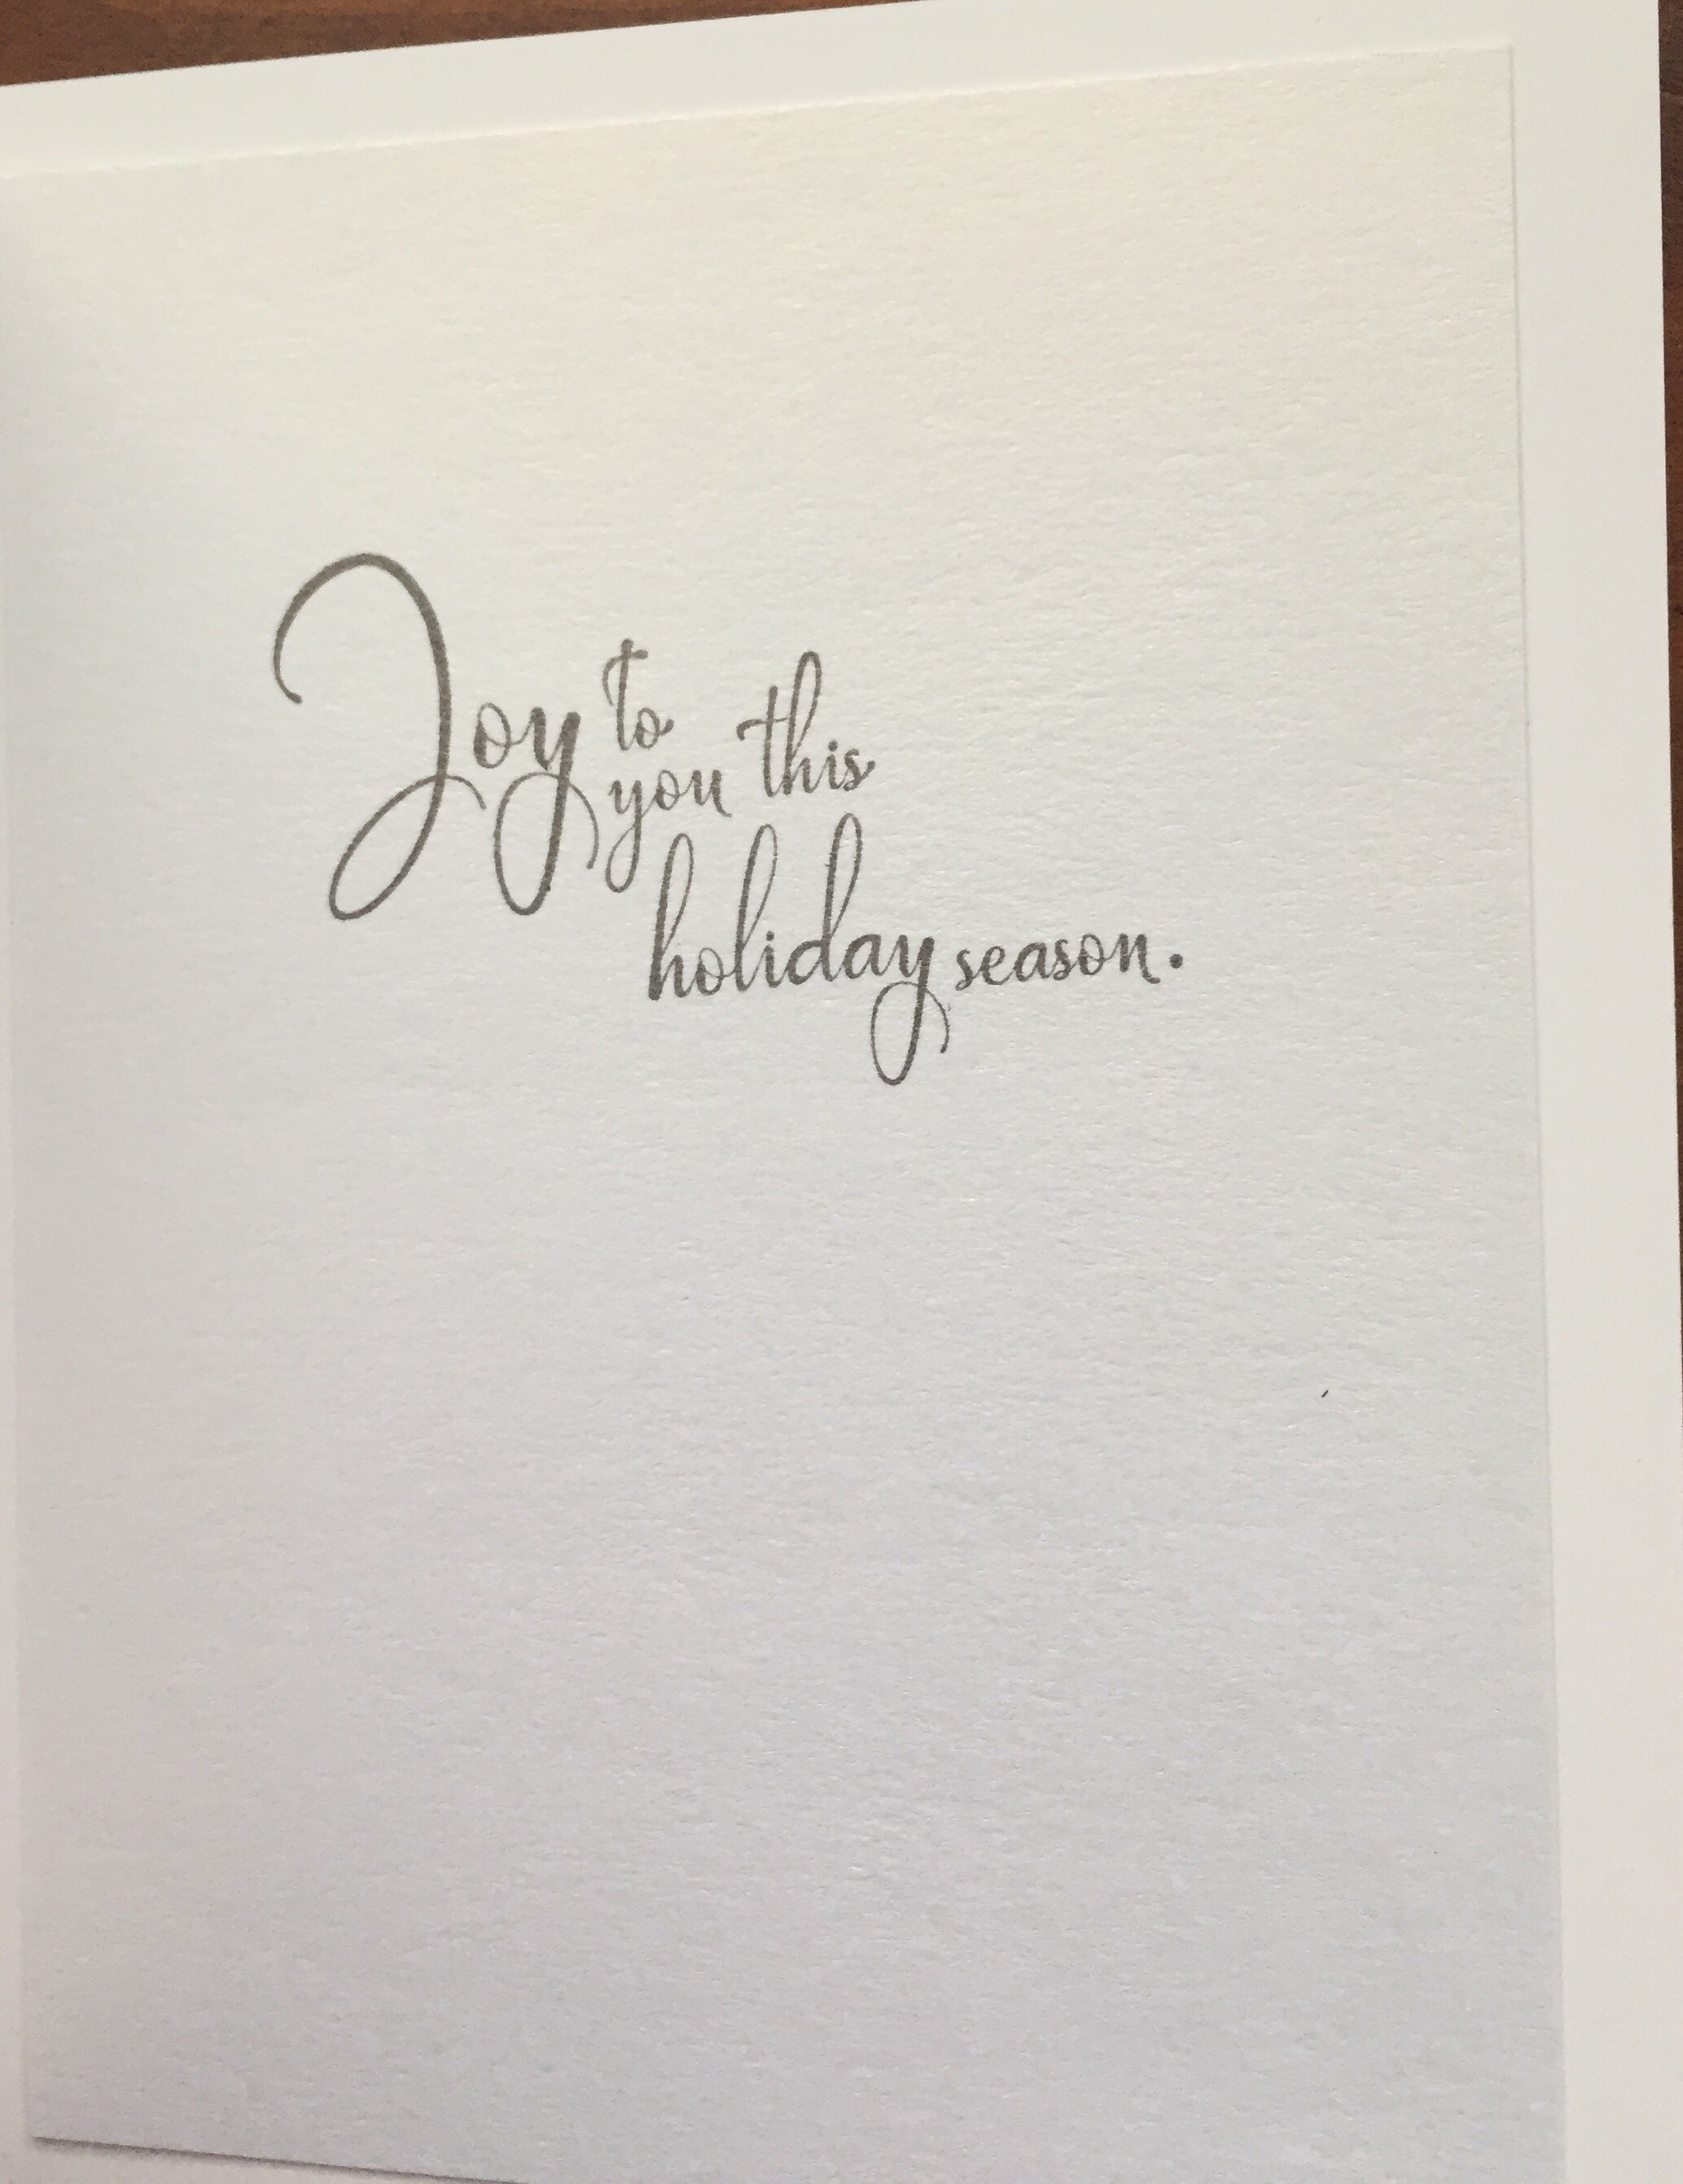 Joy to
you this
holiday season.